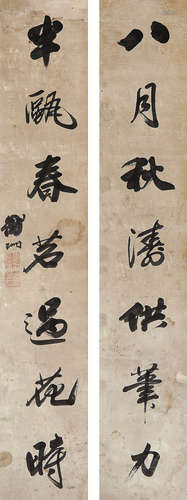 八月秋濤供筆力
半甌春茗過花時